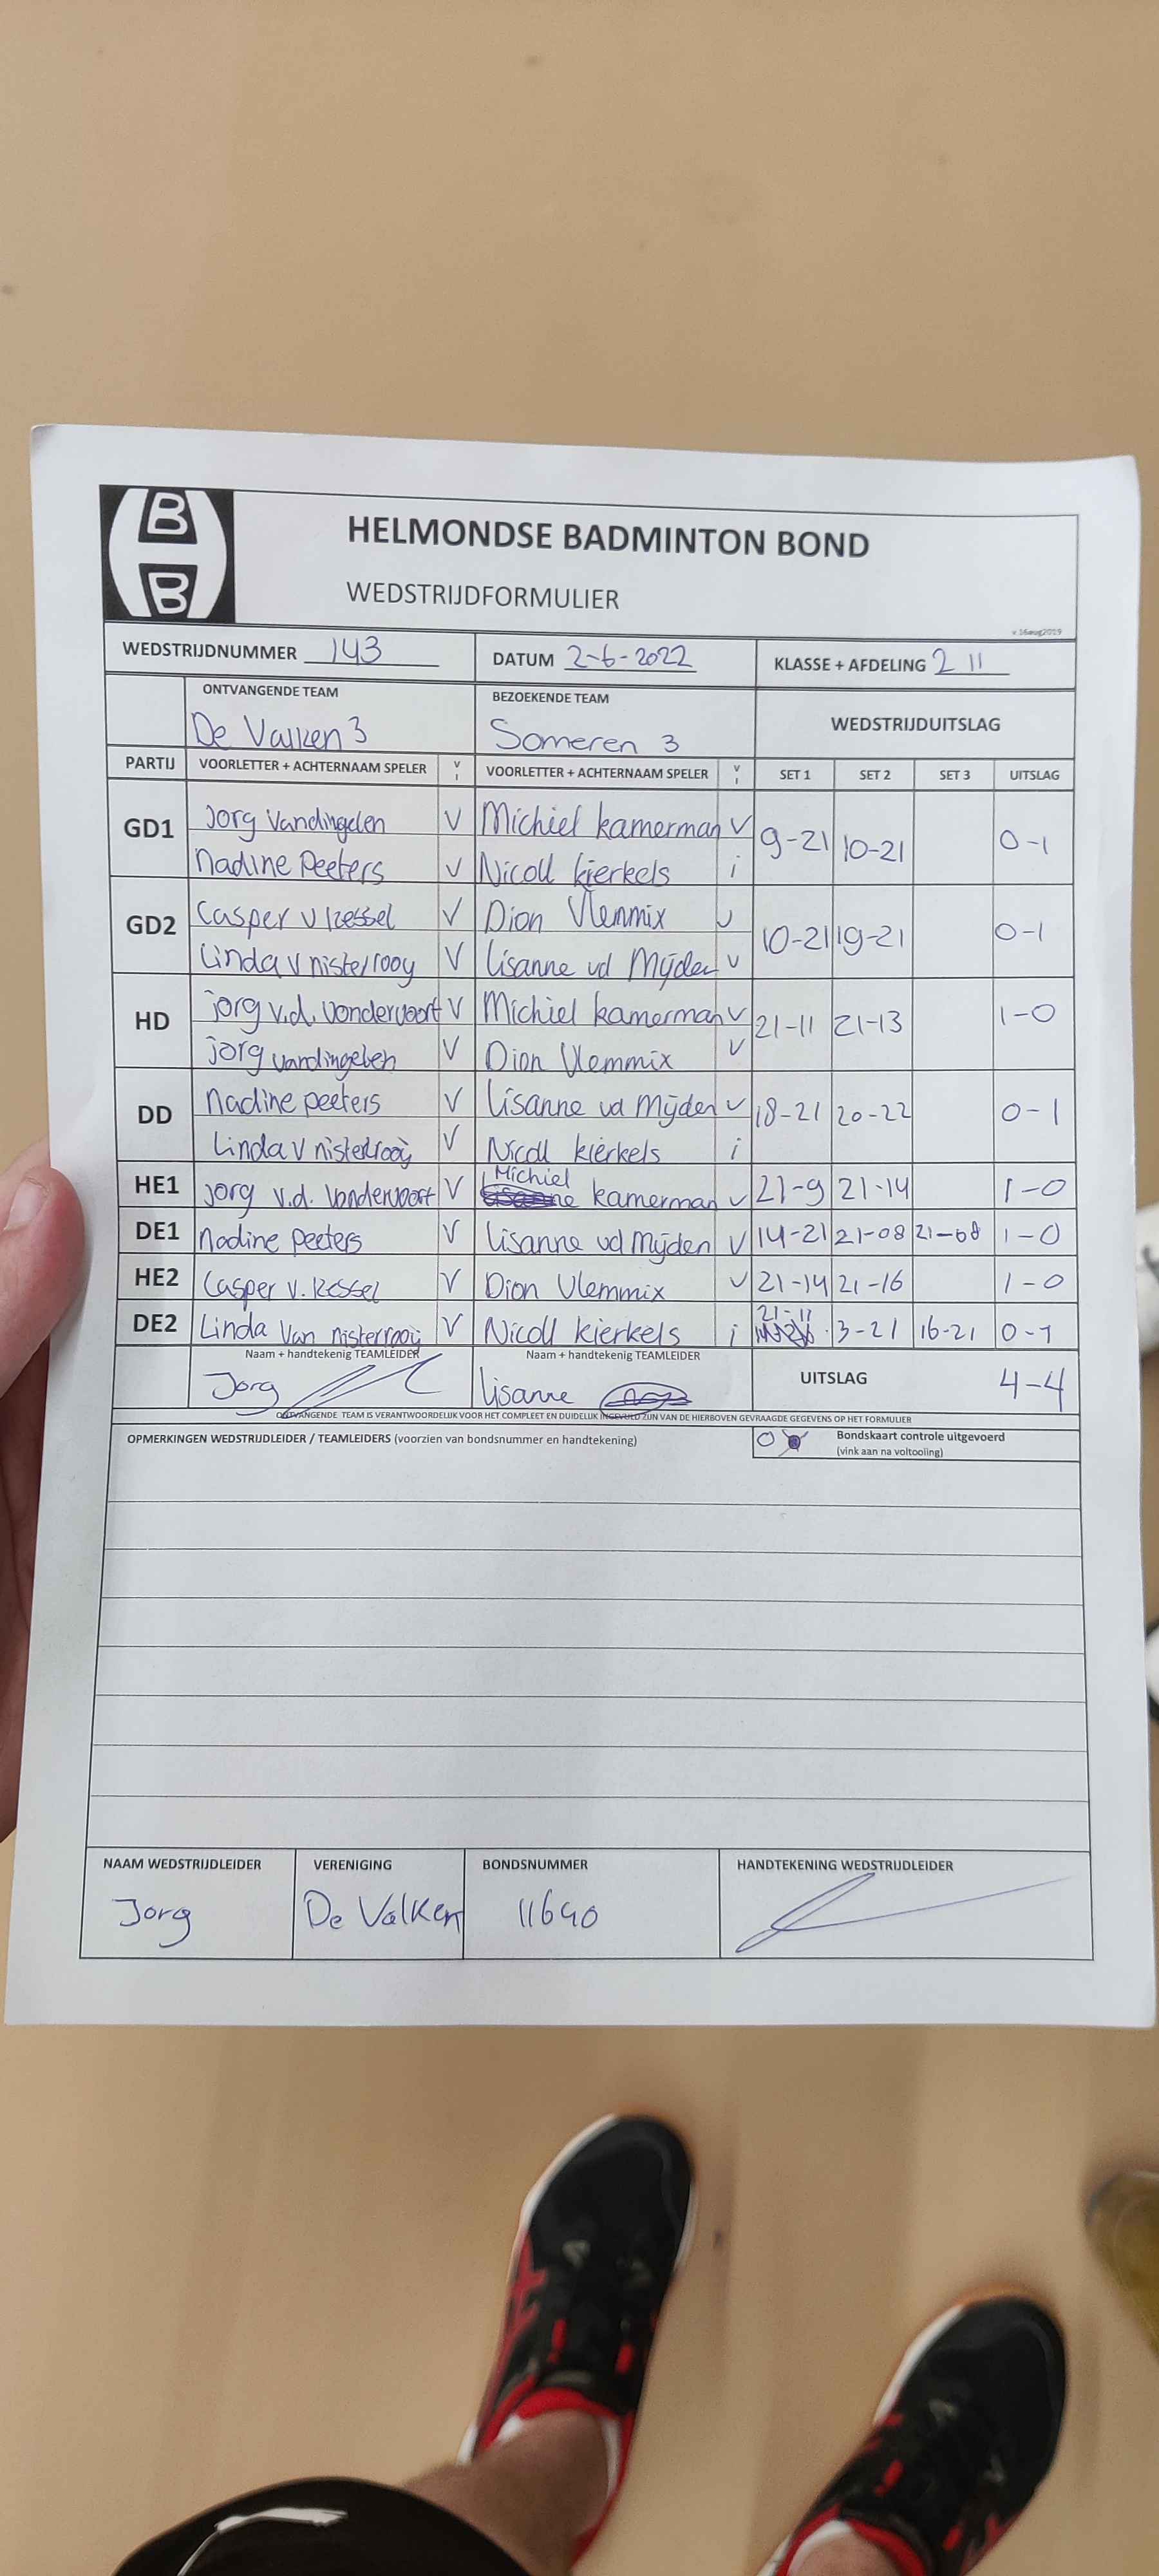 B
B
HELMONDSE BADMINTON BOND
WEDSTRIJDFORMULIER
v.16aug2019
WEDSTRIJDNUMMER 143 DATUM 2-6-2022 KLASSE + AFDELING 2 11
ONTVANGENDE TEAM BEZOEKENDE TEAM WEDSTRIJDUITSLAG
De Valken 3 Someren 3
PARTIJ VOORLETTER + ACHTERNAAM SPELER V I VOORLETTER + ACHTERNAAM SPELER V I SET 1 SET 2 SET 3 UITSLAG
GD1 Jorg Vandingelen V Michiel kamerman V 9-21 10-21 0-1
Nadine Peeters V Nicoll kierkels i
GD2 Casper v kessel V Dion Vlemmix V 10-21 19-21 0-1
Linda v nistelrooy V Lisanne vd Mijden V
HD jorg v.d. vondervoort V Michiel kamerman V 21-11 21-13 1-0
jorg vandingelen V Dion Vlemmix V
DD Nadine peeters V Lisanne vd Mijden V 18-21 20-22 0-1
Linda v nistelrooij V Nicoll kierkels i
HE1 jorg v.d. Vondervoort V Michiel kamerman V 21-9 21-14 1-0
DE1 Nadine peeters V Lisanne vd Mijden V 14-21 21-08 21-08 1-0
HE2 Casper v. kessel V Dion Vlemmix V 21-14 21-16 1-0
DE2 Linda van nistelrooij V Nicoll kierkels i 21-11 3-21 16-21 0-1
Naam + handtekenig TEAMLEIDER Naam + handtekenig TEAMLEIDER
Jorg Lisanne UITSLAG 4-4
ONTVANGENDE TEAM IS VERANTWOORDELIJK VOOR HET COMPLEET EN DUIDELIJK INGEVULD ZIJN VAN DE HIERBOVEN GEVRAAGDE GEGEVENS OP HET FORMULIER
OPMERKINGEN WEDSTRIJDLEIDER / TEAMLEIDERS (voorzien van bondsnummer en handtekening) Bondskaart controle uitgevoerd
(vink aan na voltooiing)
NAAM WEDSTRIJDLEIDER VERENIGING BONDSNUMMER HANDTEKENING WEDSTRIJDLEIDER
Jorg De Valken 11690